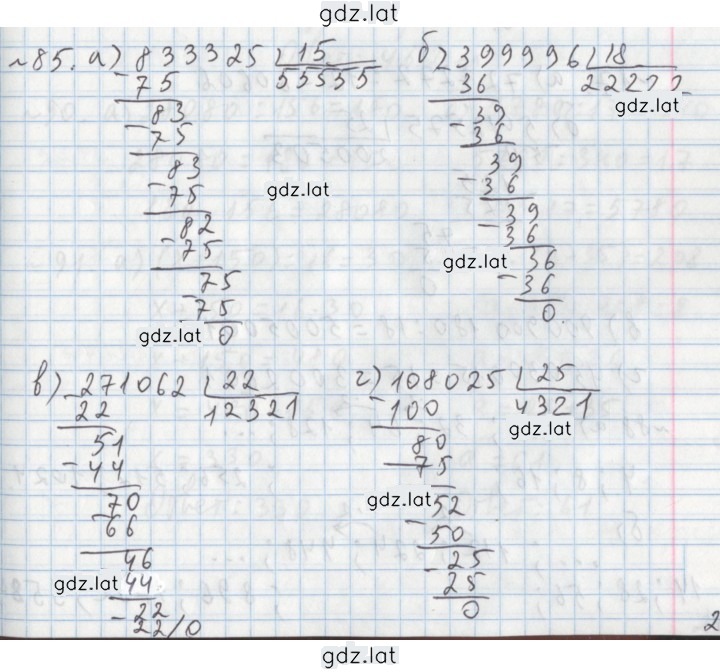 gdz.lat
№85. а) 833325 15 б) 399996 18
75 55555 36 22222
83 39 gdz.lat
75 36
83 39
75 gdz.lat 36
82 39
75 36
75 gdz.lat 36
75 36
gdz.lat 0 0
в) 271062 22 г) 108025 25
22 12321 100 4321
51 80 gdz.lat
44 75
70 gdz.lat 52
66 50
46 25
gdz.lat 44 25
22 0
22/0
2
gdz.lat